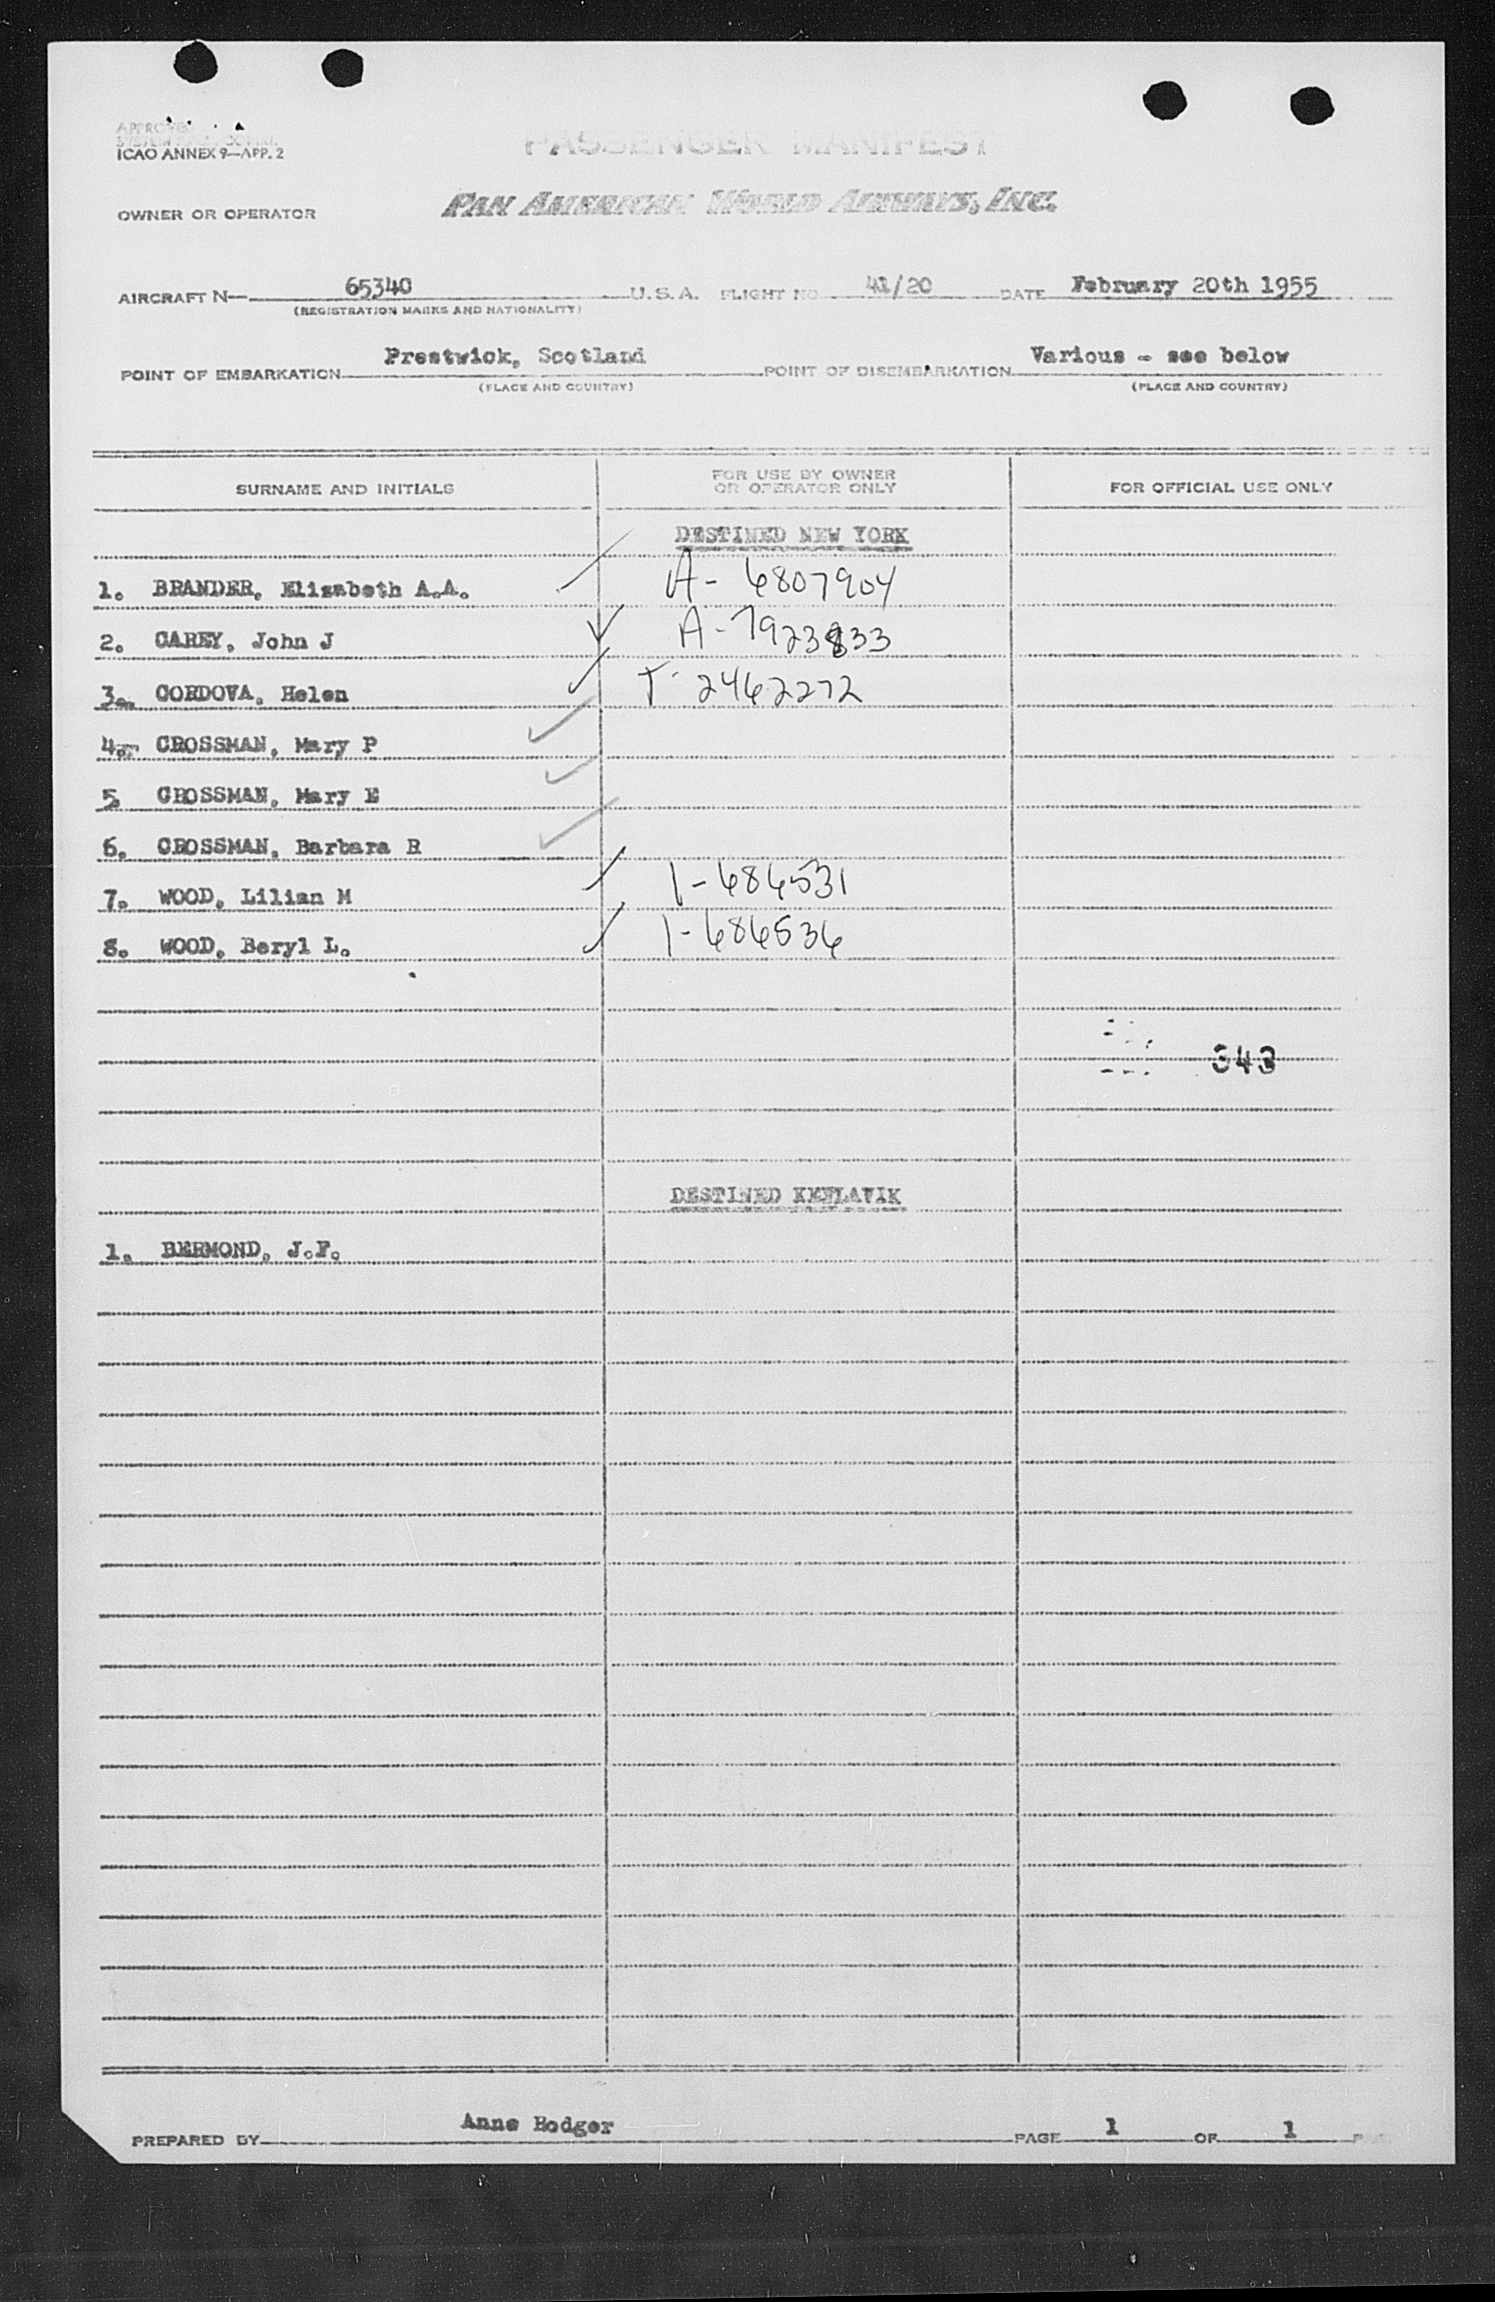 ICAO ANNEX 9—APP. 2
PASSENGER MANIFEST
OWNER OR OPERATOR PAN AMERICAN WORLD AIRWAYS, INC.
AIRCRAFT N— 65340 U.S.A. FLIGHT NO 41/20 DATE February 20th 1955
(REGISTRATION MARKS AND NATIONALITY)
POINT OF EMBARKATION Prestwick, Scotland POINT OF DISEMBARKATION Various - see below
(PLACE AND COUNTRY) (PLACE AND COUNTRY)
SURNAME AND INITIALS FOR USE BY OWNER OR OPERATOR ONLY FOR OFFICIAL USE ONLY
DESTINED NEW YORK
1. BRANDER, Elizabeth A.A. A- 6807904
2. CAREY, John J A-7923833
3. CORDOVA, Helen T- 2462272
4. CROSSMAN, Mary P
5 CROSSMAN, Mary E
6. CROSSMAN, Barbara R
7. WOOD, Lilian M 1-686531
8. WOOD, Beryl L. 1-686536
343
DESTINED KEFLAVIK
1. BERMOND, J.F.
PREPARED BY Anne Rodger PAGE 1 OF 1